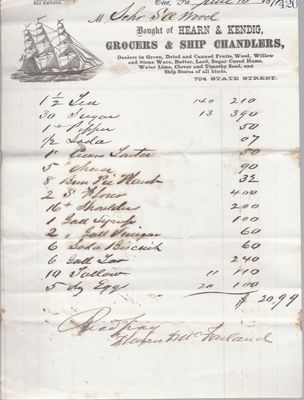 420
M John S & Wood
Bought of HEARN & KENDIG,
GROCERS & SHIP CHANDLERS,
Dealers in Green, Dried and Canned Fruits, Wood, Willow
and Stone Ware, Butter, Lard, Sugar Cured Hams,
Water Lime, Clover and Timothy Seed, and
Ship Stores of all kinds.
704 STATE STREET.
1 1/2 Tea 140 210
30 Sugar 13 390
1 " Pepper 50
1/2 Soda 07
1 " Cream Tartar 50
5 " 90
8 32
2 S Flour 400
16 " Shoulder 200
1 Gall Syrup 100
2 , Gall Vinegar 60
6 Soda Biscuit 60
6 Gall Tar 240
10 Tallow 11 110
5 dz Eggs 20 100
$ 20.99
Hearn & McFarland